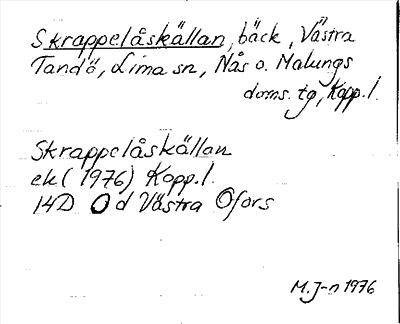 Skrappelåskällan, bäck, Västra
Tandö, Lima sn, Nås o. Malungs
doms. tg, Kopp.l.
Skrappelåskällan
ek (1976) Kopp.l.
14D 0d Västra Ofors
M.J-n 1976